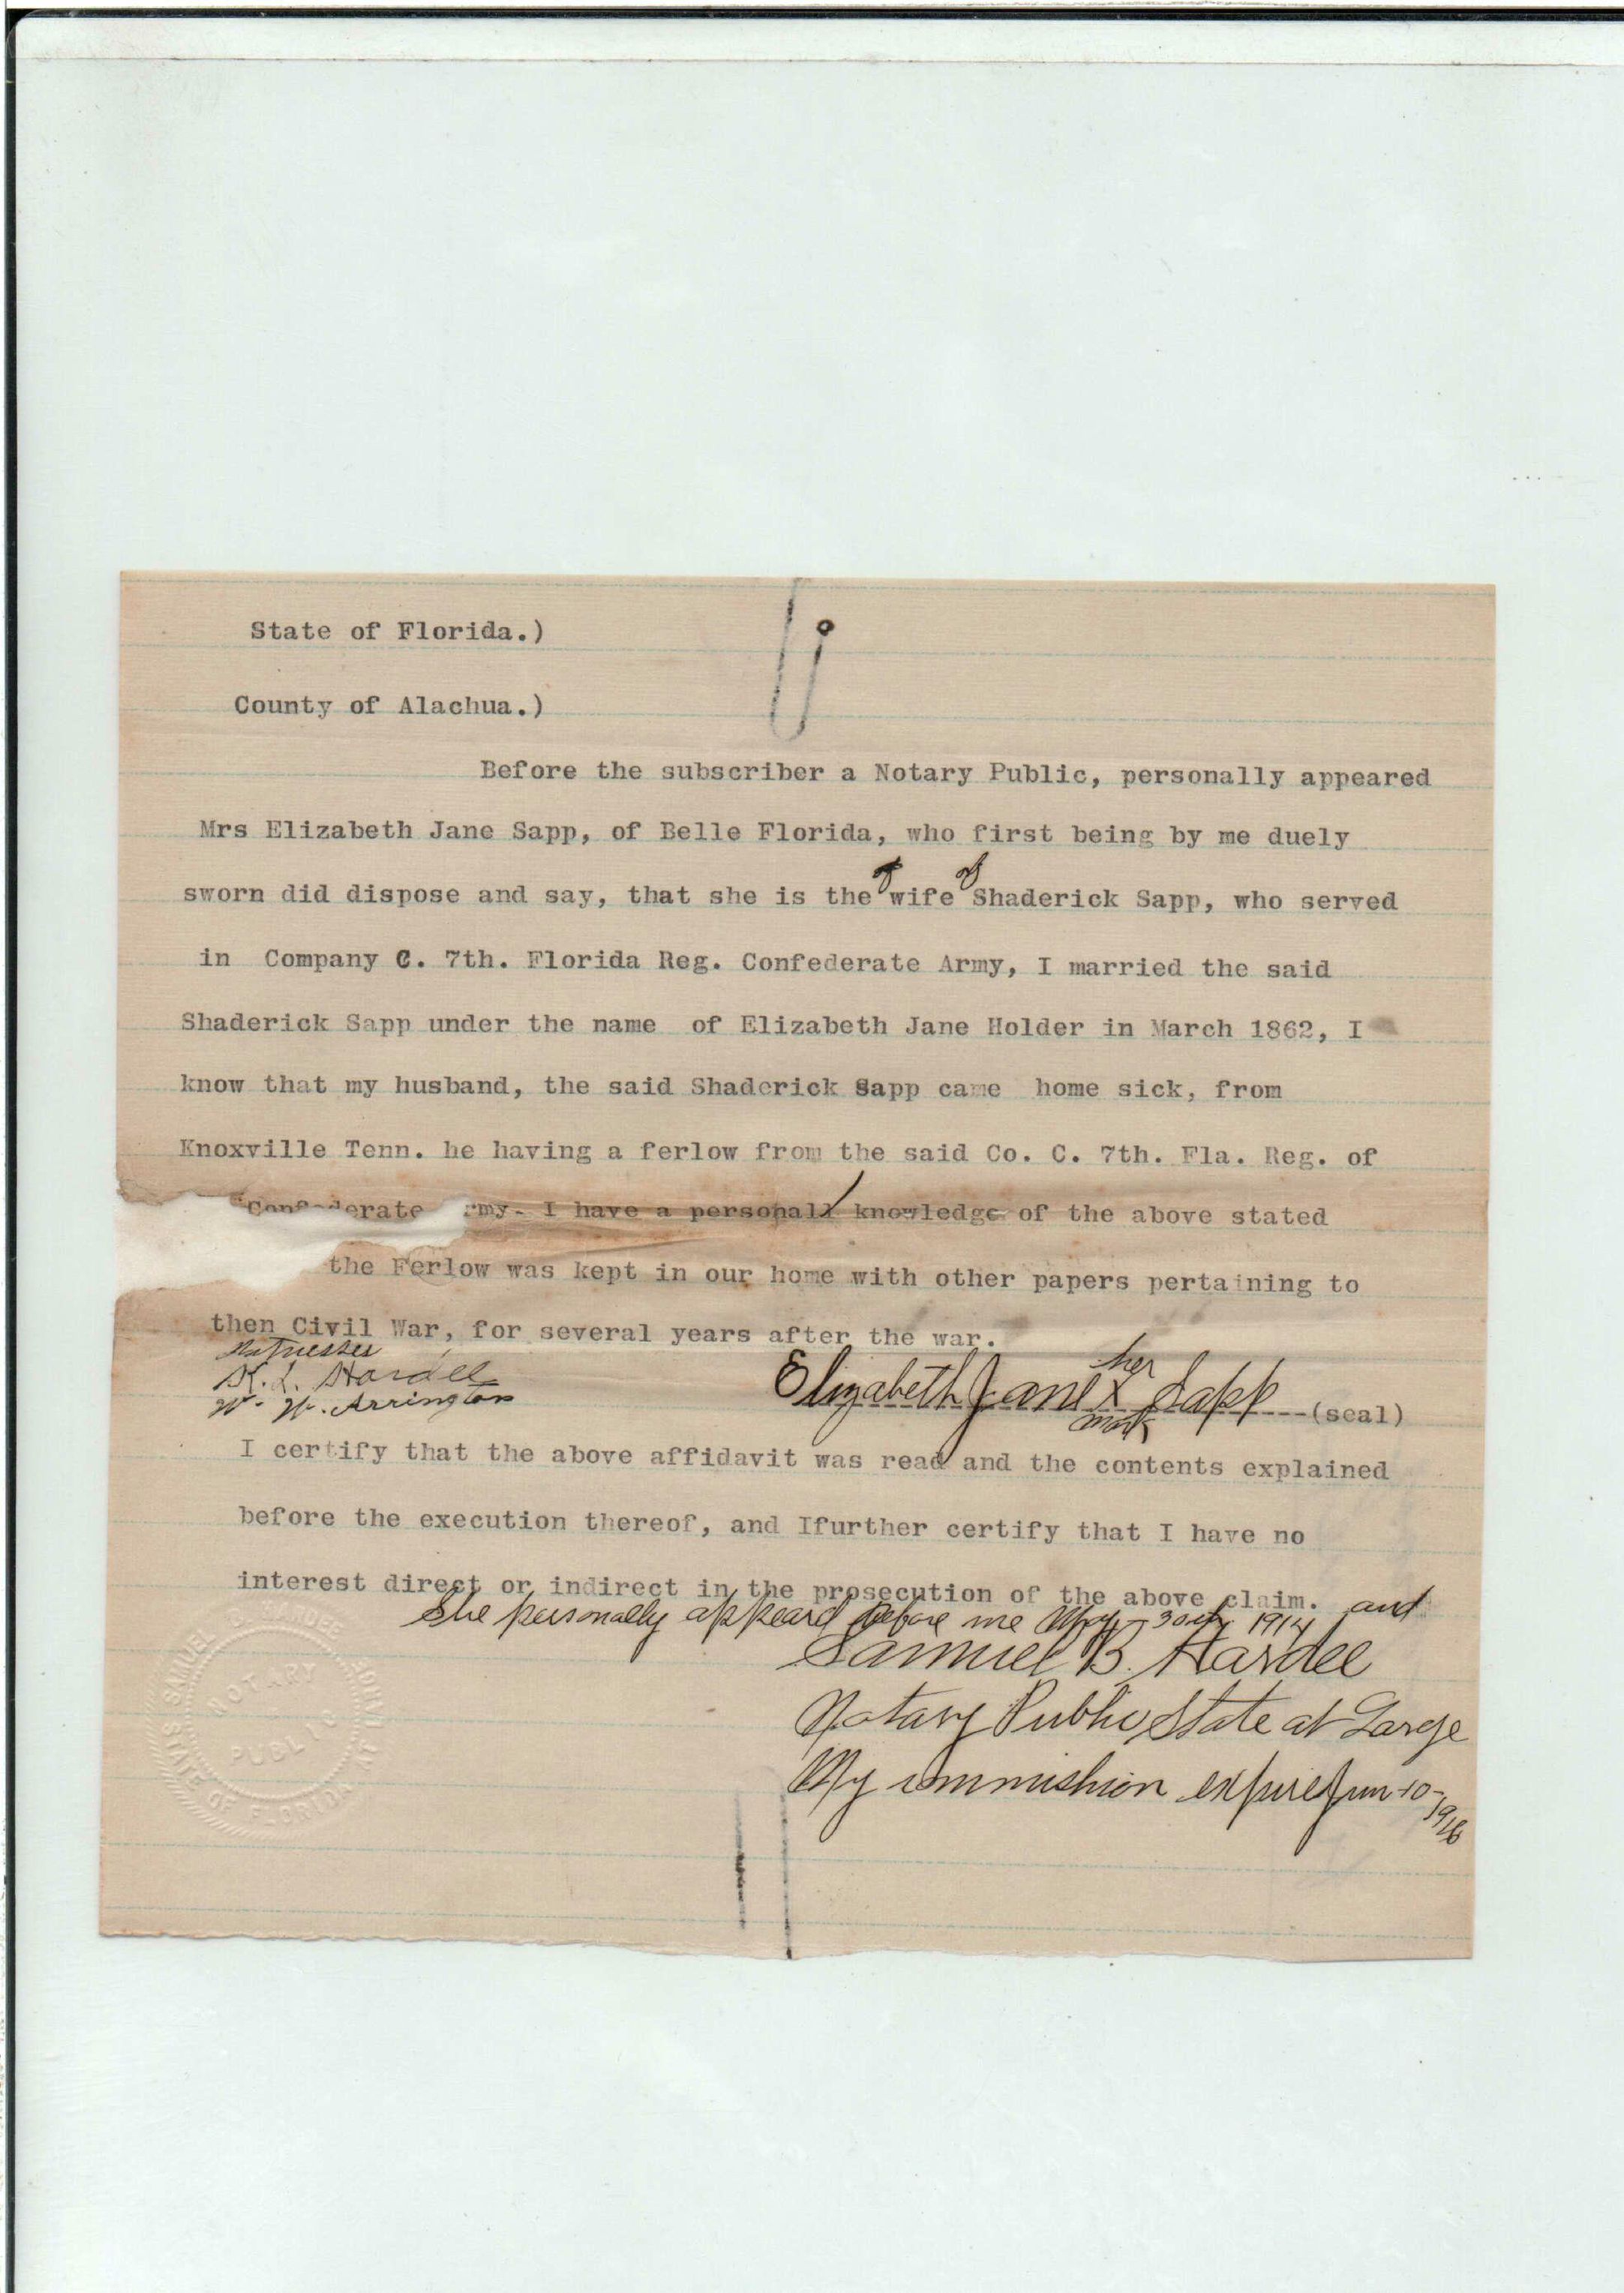 State of Florida.)
County of Alachua.)
Before the subscriber a Notary Public, personally appeared
Mrs Elizabeth Jane Sapp, of Belle Florida, who first being by me duely
sworn did dispose and say, that she is the wife of Shaderick Sapp, who served
in Company C. 7th. Florida Reg. Confederate Army, I married the said
Shaderick Sapp under the name of Elizabeth Jane Holder in March 1862, I
know that my husband, the said Shaderick Sapp came home sick, from
Knoxville Tenn. he having a ferlow from the said Co. C. 7th. Fla. Reg. of
Confederate rmy. I have a personall knowledge of the above stated
the Ferlow was kept in our home with other papers pertaining to
then Civil War, for several years after the war.
Witnesses
K. L. Hardee
W. W. Arrington
her
Elizabeth Jane X Sapp (seal)
mark
I certify that the above affidavit was read and the contents explained
before the execution thereof, and Ifurther certify that I have no
interest direct or indirect in the prosecution of the above claim. and
She personally appeard before me May 30th 1914
Samuel B. Hardee
Notary Public State at Large
My commishion expires Jun 10-1916
SAMUEL B. HARDEE
NOTARY
PUBLIC
STATE OF FLORIDA AT